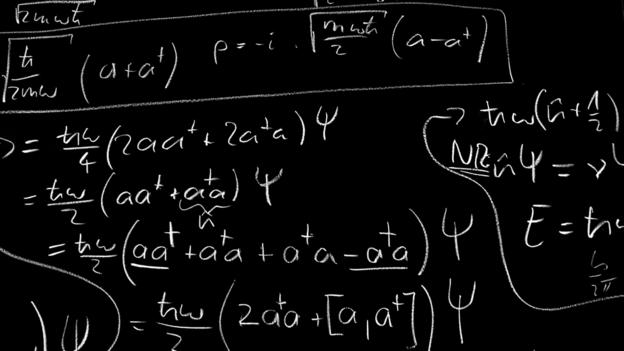 √2mωħ
√ħ/2mω (a+a†) p=-i·√mωħ/2 (a-a†)
= ħω/4 (2aa†+2a†a)Ψ
= ħω/2 (aa†+a†a)Ψ
n̂
= ħω/2 (aa†+a†a+a†a-a†a)Ψ
)Ψ = ħω/2 (2a†a+[a,a†])Ψ
→ ħω(n̂+1/2)
NR: n̂Ψ = νΨ
E = ħω
h/2π